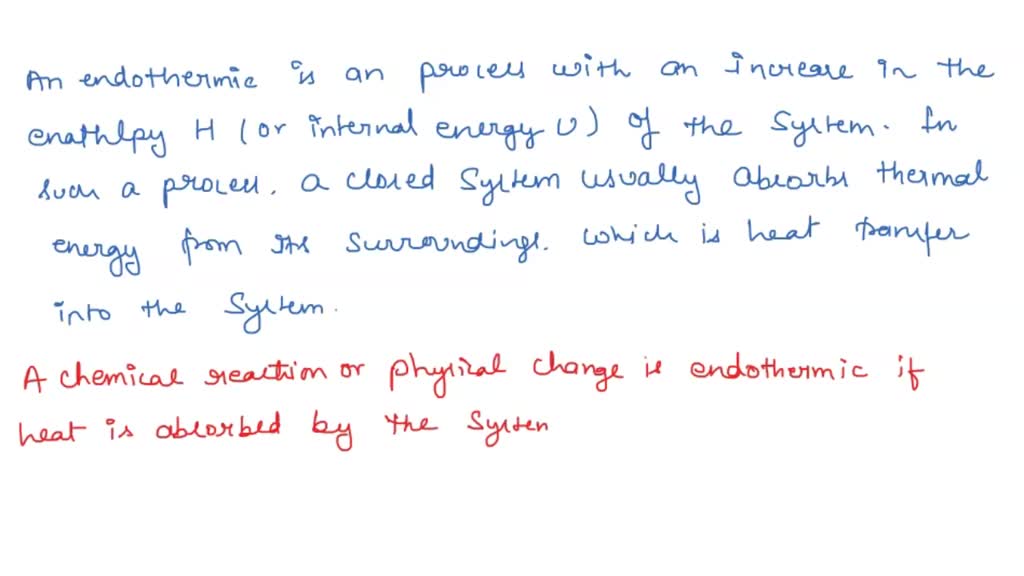 An endothermic is an process with an increase in the
enathlpy H (or internal energy U) of the system. In
such a process. a closed system usually absorbs thermal
energy from its surroundings. which is heat transfer
into the system.
A chemical reaction or physical change is endothermic if
heat is absorbed by the system